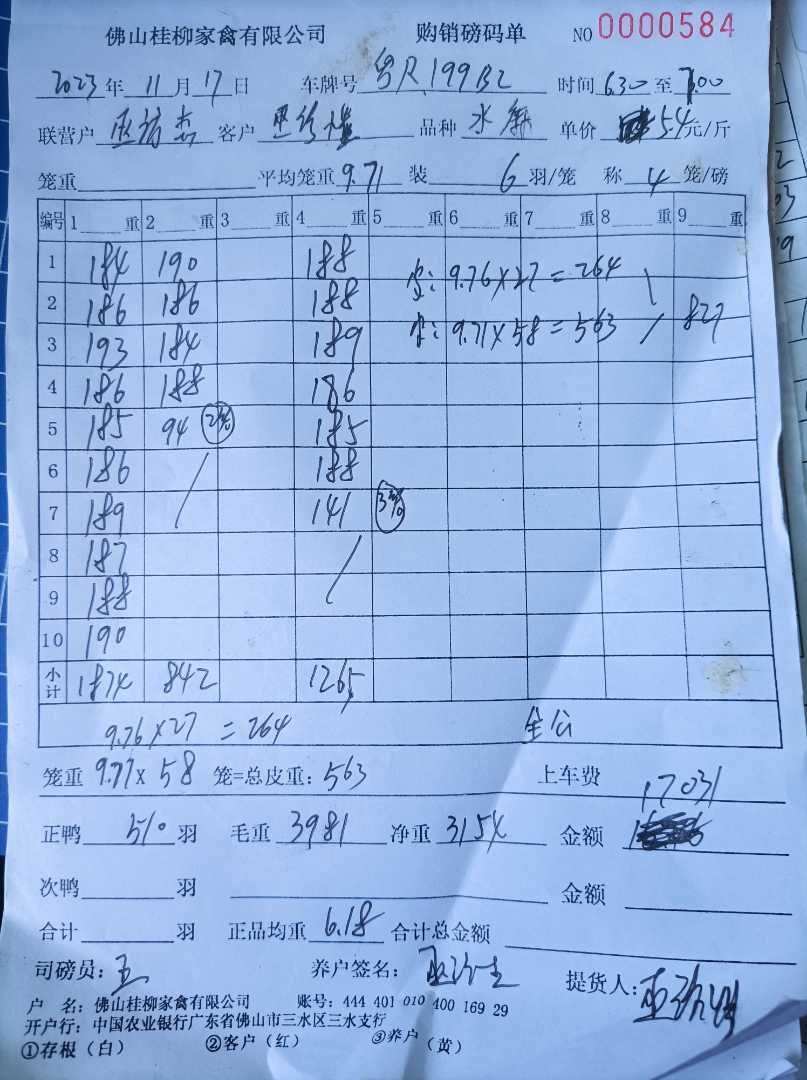 佛山桂柳家禽有限公司 购销磅码单 NO 0000584
2023年 11月17日 车牌号 199B2 时间 630 至 700
联营户 客户 品种 水 单价 5.4元/斤
笼重 平均笼重 9.71 装 6 羽/笼 称 4 笼/磅
编号 1 重 2 重 3 重 4 重 5 重 6 重 7 重 8 重 9 重
1 184 190 188 9.76×27=264
2 186 186 188
3 193 184 189 9.71×58=563 827
4 186 188 186
5 185 94 185
6 186 188
7 189 141
8 187
9 188
10 190
小计 1874 842 1265
9.76×27=264 全公
笼重 9.71×58 笼=总皮重: 563 上车费
17031
正鸭 510 羽 毛重 3981 净重 3154 金额
次鸭 羽 金额
合计 羽 正品均重 6.18 合计总金额
司磅员: 养户签名: 提货人:
户 名: 佛山桂柳家禽有限公司 账号: 444 401 010 400 169 29
开户行: 中国农业银行广东省佛山市三水区三水支行
①存根(白) ②客户(红) ③养户(黄)